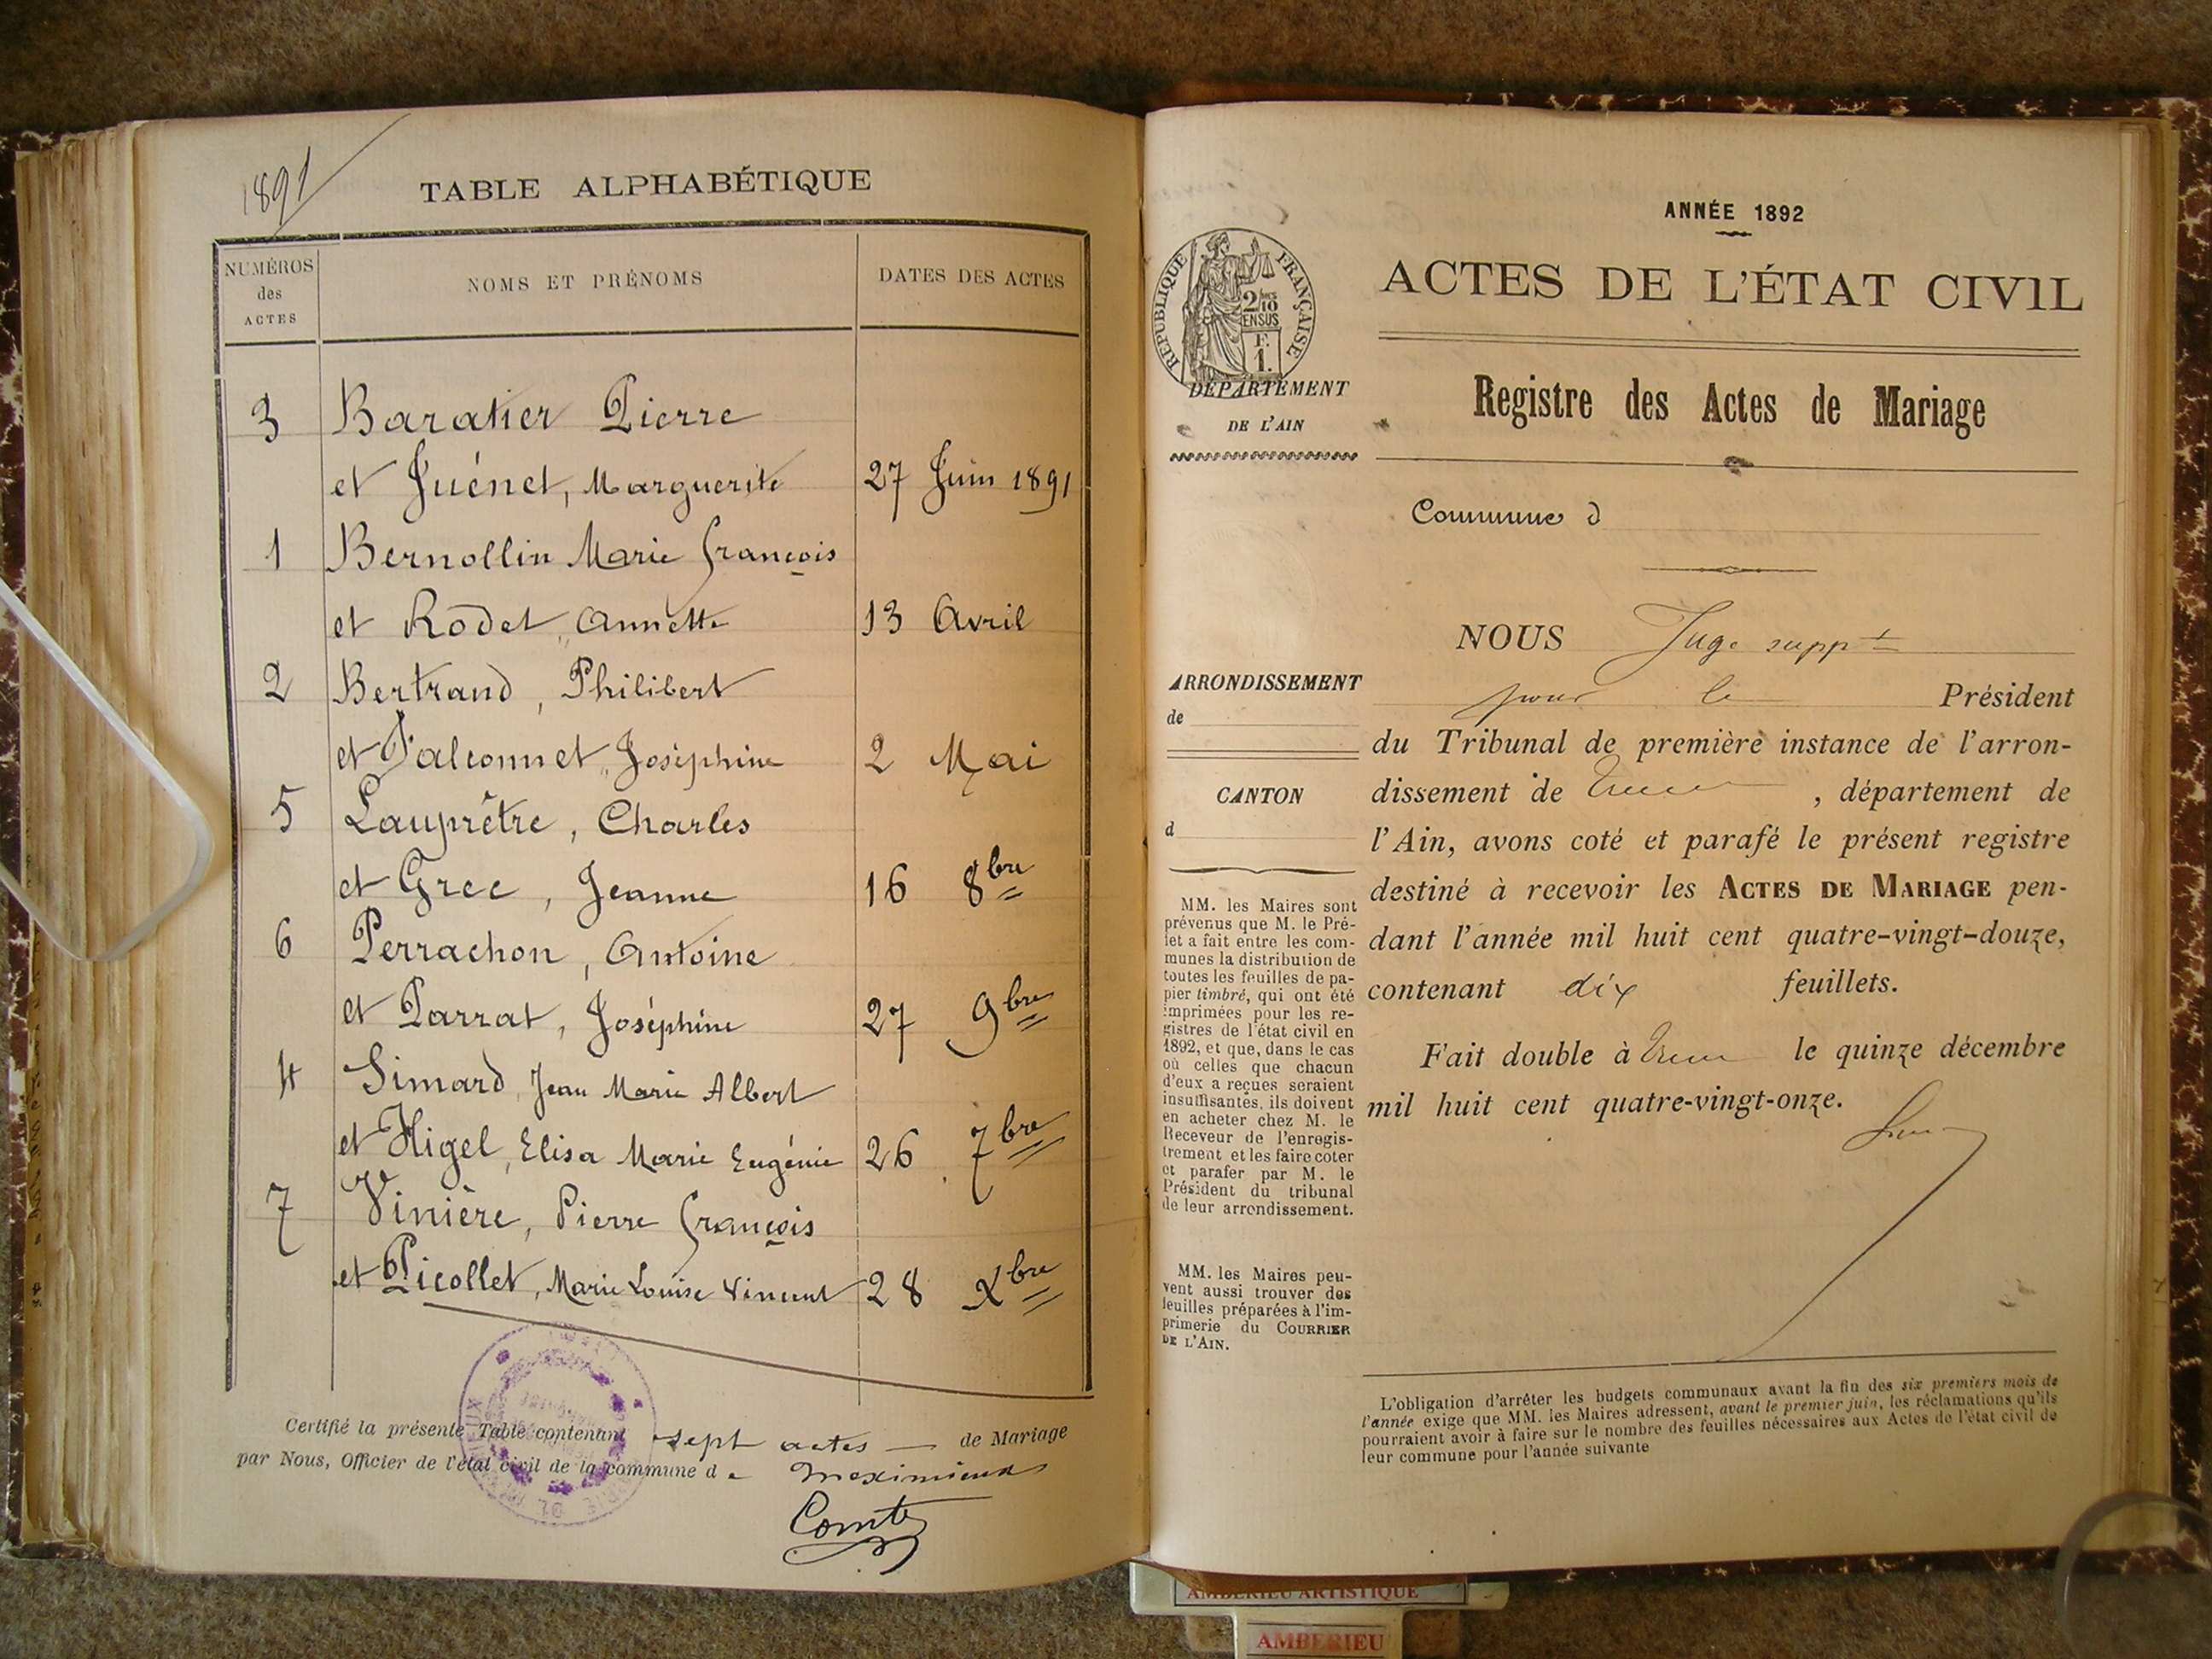 1891
TABLE ALPHABÉTIQUE
NUMÉROS
des
ACTES
NOMS ET PRÉNOMS
DATES DES ACTES
3 Baratier Pierre
et Juénet, Marguerite 27 Juin 1891
1 Bernollin Marie François
et Rodet, Annette 13 Avril
2 Bertrand, Philibert
et Falconnet, Joséphine 2 Mai
5 Lauprêtre, Charles
et Grec, Jeanne 16 8bre
6 Perrachon, Antoine
et Parrat, Joséphine 27 9bre
4 Simard Jean Marie Albert
et Higel, Elisa Marie Eugénie 26 7bre
7 Vinière, Pierre François
et Picollet, Marie Louise Vincent 28 Xbre
Certifié la présente Table contenant sept actes — de Mariage
par Nous, Officier de l'état civil de la commune de Meximieux
Comte
ANNÉE 1892
ACTES DE L'ÉTAT CIVIL
RÉPUBLIQUE FRANÇAISE
2/10
EN SUS
F.
1.
DÉPARTEMENT
DE L'AIN
Registre des Actes de Mariage
Commune d
NOUS Juge suppt
pour le Président
du Tribunal de première instance de l'arron-
dissement de , département de
l'Ain, avons coté et parafé le présent registre
destiné à recevoir les ACTES DE MARIAGE pen-
dant l'année mil huit cent quatre-vingt-douze,
contenant dix feuillets.
Fait double à le quinze décembre
mil huit cent quatre-vingt-onze.
ARRONDISSEMENT
de
CANTON
d
MM. les Maires sont
prévenus que M. le Pré-
fet a fait entre les com-
munes la distribution de
toutes les feuilles de pa-
pier timbré, qui ont été
imprimées pour les re-
gistres de l'état civil en
1892, et que, dans le cas
où celles que chacun
d'eux a reçues seraient
insuffisantes, ils doivent
en acheter chez M. le
Receveur de l'enregis-
trement et les faire coter
et parafer par M. le
Président du tribunal
de leur arrondissement.
MM. les Maires peu-
vent aussi trouver des
feuilles préparées à l'im-
primerie du COURRIER
DE L'AIN.
L'obligation d'arrêter les budgets communaux avant la fin des six premiers mois de
l'année exige que MM. les Maires adressent, avant le premier juin, les réclamations qu'ils
pourraient avoir à faire sur le nombre des feuilles nécessaires aux Actes de l'état civil de
leur commune pour l'année suivante
AMBERIEU ARTISTIQUE
AMBERIEU